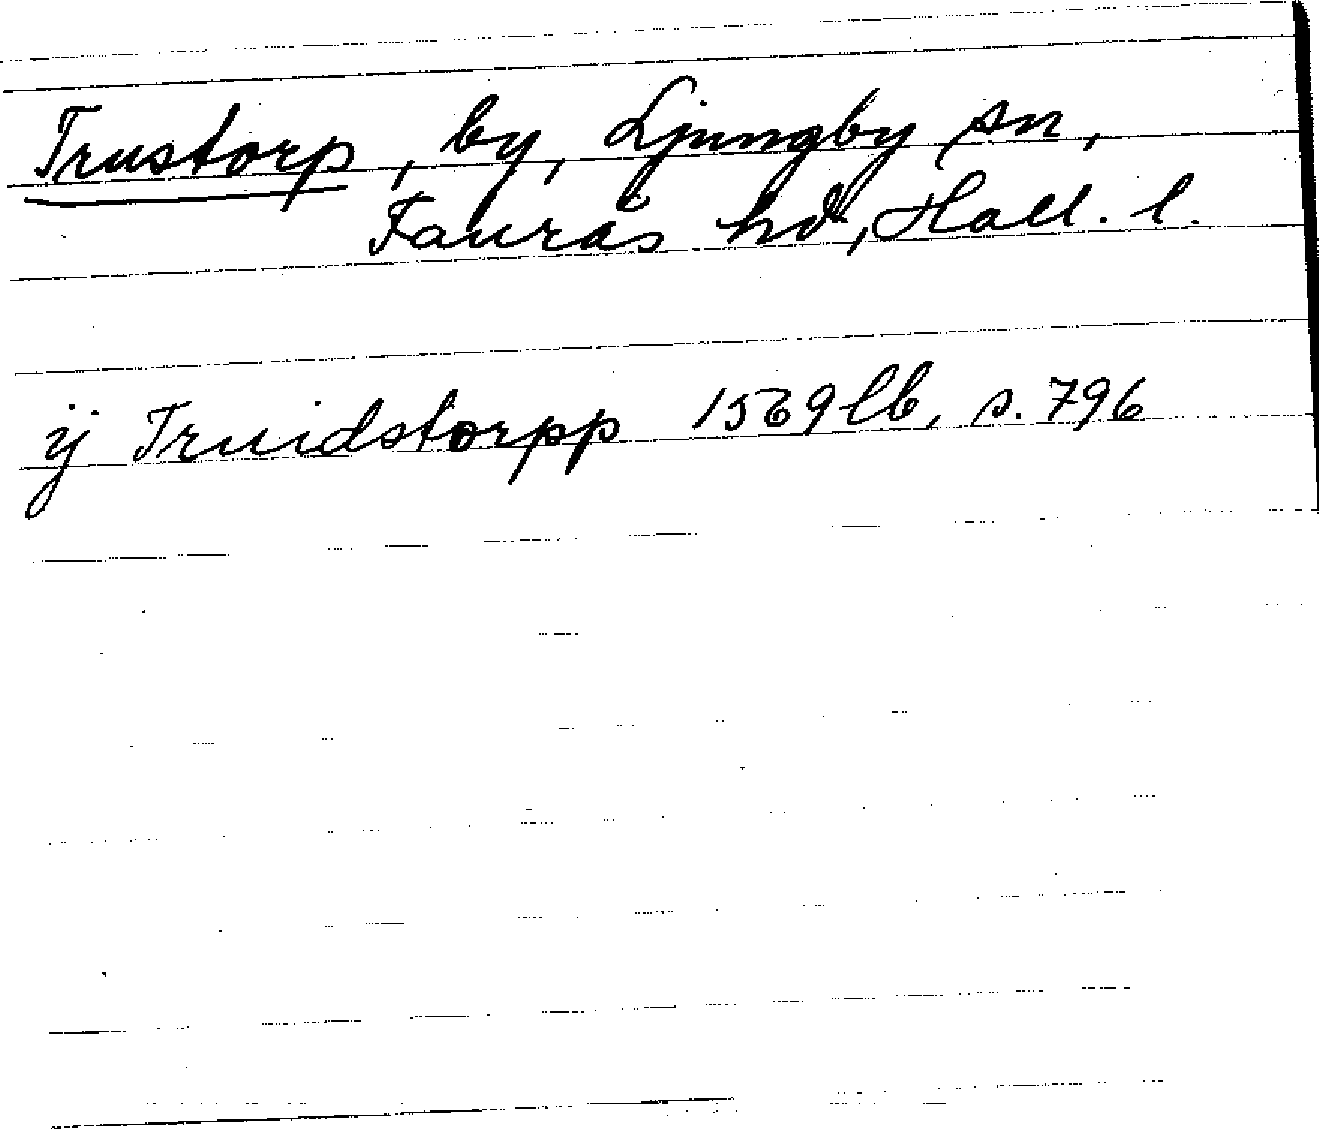 Trustorp, by, Ljungby sn,
Faurås hd, Hall. l.
ij Truidstorpp 1569 lb, s. 796